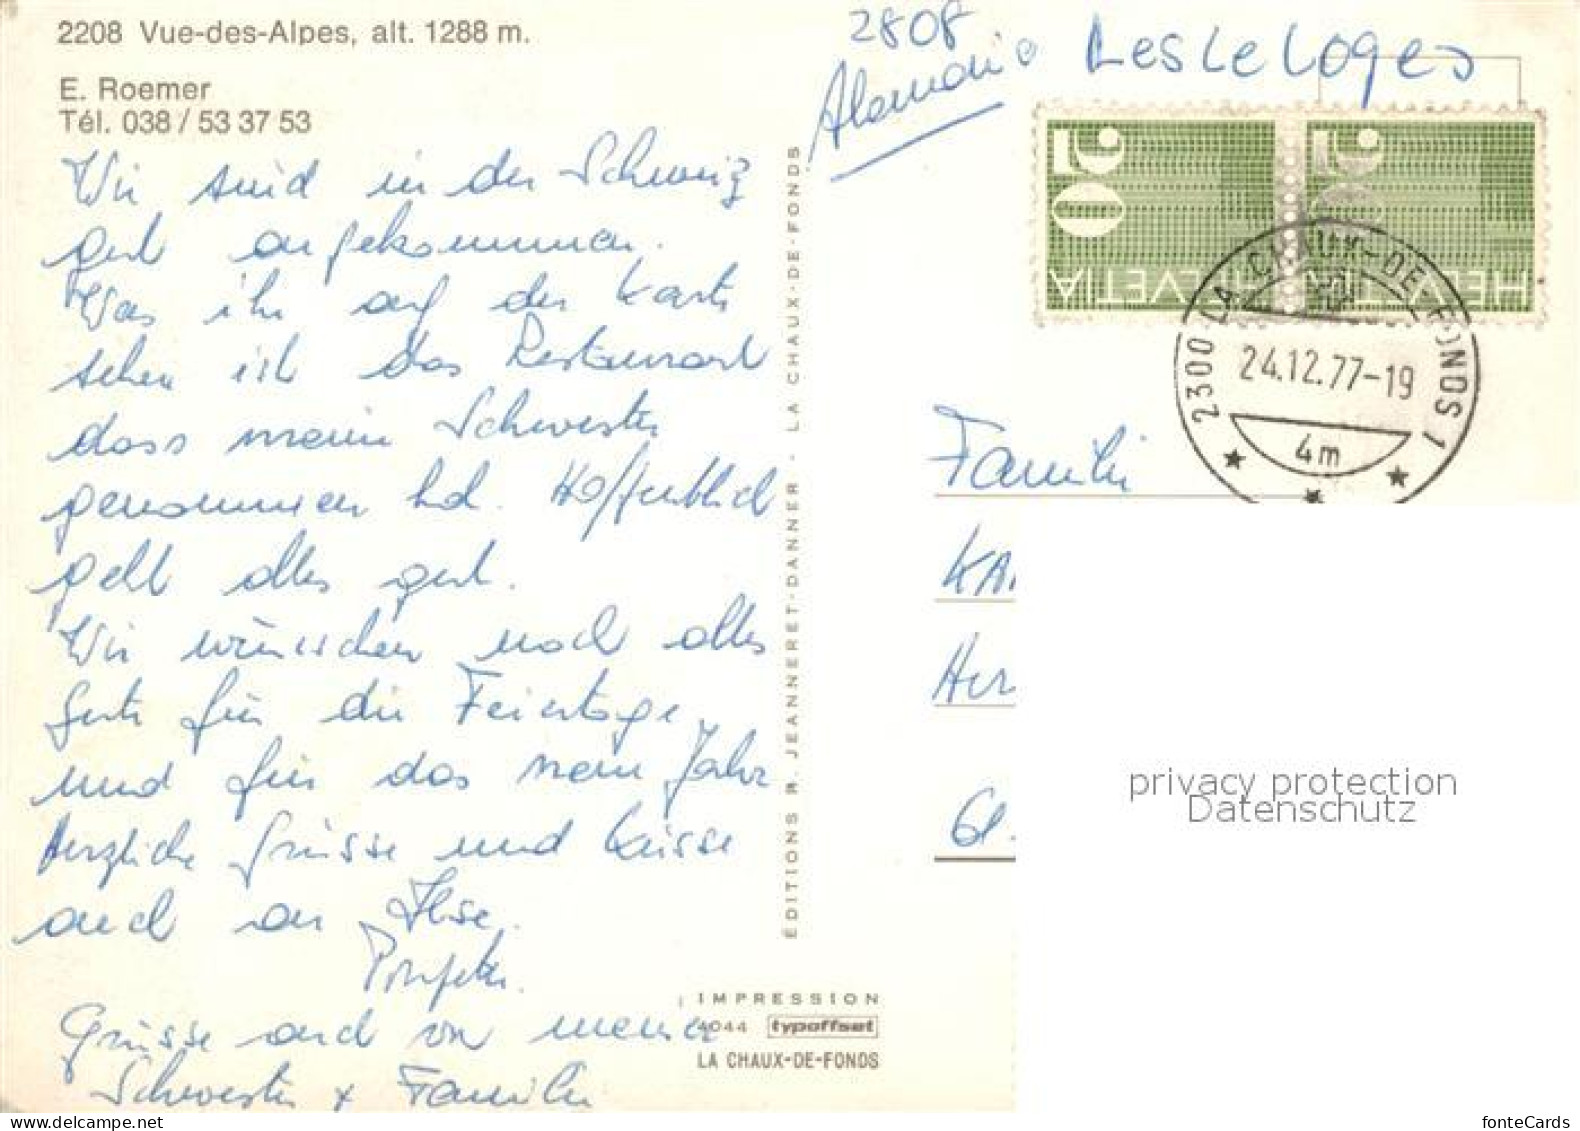 2208 Vue-des-Alpes, alt. 1288 m.
E. Roemer
Tél. 038 / 53 37 53
Wir sind in der Schweiz
gut angekommen.
Was ihr auf der Karte
sehen ist das Restaurant
dass meine Schwester
genommen hat. Hoffentlich
geht alles gut.
Wir wünschen noch alles
Gute für die Feiertage,
und für das neue Jahr
Herzliche Grüsse und Küsse
auch an Ilse.
Grüsse auch von meiner
Schwester + Familie
EDITIONS R. JEANNERET-DANNER - LA CHAUX-DE-FONDS
IMPRESSION
4044 typoffset
LA CHAUX-DE-FONDS
2808
Alemania
Les Le Loges
50
50
HELVETIA
HELVETIA
2300 LA CHAUX-DE-FONDS 1
24.12.77-19
4m
Familie
KA
Her
Gl.
privacy protection
Datenschutz
fonteCards